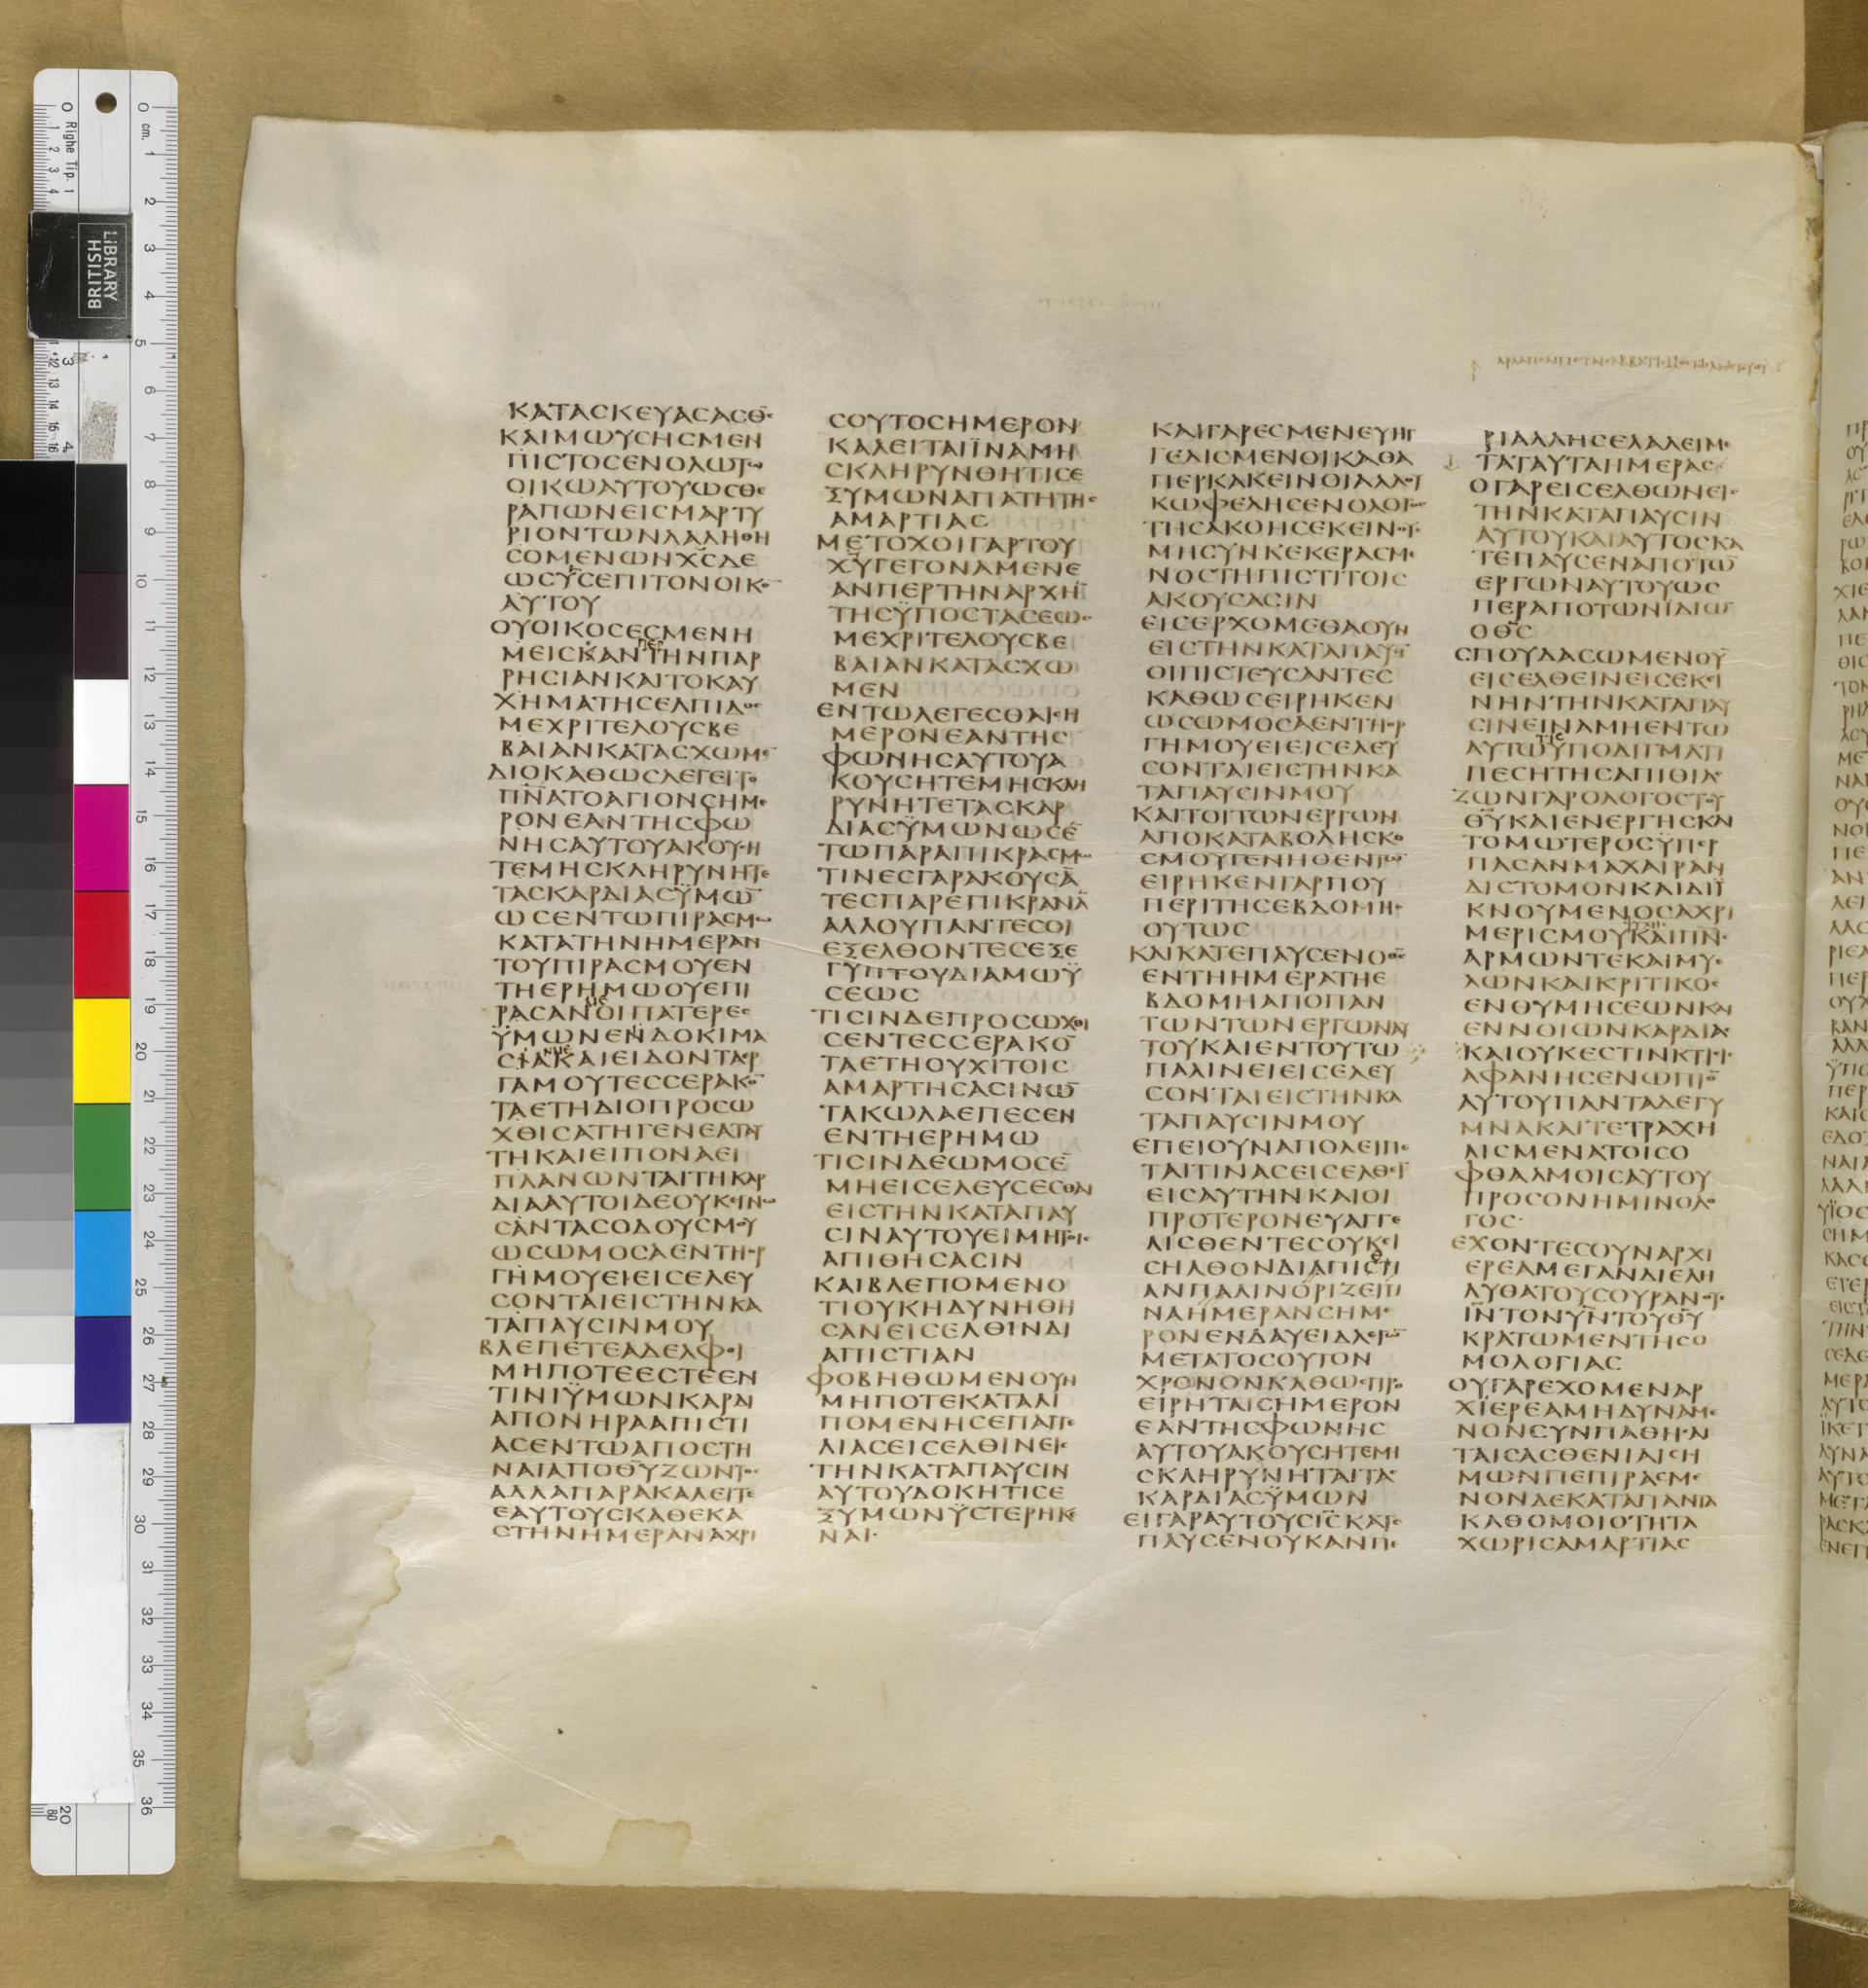 ΚΑΤΑϹΚΕΥΑϹΑϹΘ̅Ϲ
ΚΑΙΜΩΥϹΗϹΜΕΝ
ΠΙϹΤΟϹΕΝΟΛΩΤΩ
ΟΙΚΩΑΥΤΟΥΩϹΘΕ
ΡΑΠΩΝΕΙϹΜΑΡΤΥ
ΡΙΟΝΤΩΝΛΑΛΗΘΗ
ϹΟΜΕΝΩΝΧ̅Ϲ̅ΔΕ
ΩϹΥ̅Ϲ̅ΕΠΙΤΟΝΟΙΚΟ̅
ΑΥΤΟΥ
ΟΥΟΙΚΟϹΕϹΜΕΝΗ
ΜΕΙϹΚΑΝΠΕΡΤΗΝΠΑΡ
ΡΗϹΙΑΝΚΑΙΤΟΚΑΥ
ΧΗΜΑΤΗϹΕΛΠΙΔΟϹ
ΜΕΧΡΙΤΕΛΟΥϹΒΕ
ΒΑΙΑΝΚΑΤΑϹΧΩΜΕ̅
ΔΙΟΚΑΘΩϹΛΕΓΕΙΤΟ
Π̅Ν̅ΑΤΟΑΓΙΟΝϹΗΜΕ
ΡΟΝΕΑΝΤΗϹΦΩ
ΝΗϹΑΥΤΟΥΑΚΟΥϹΗ
ΤΕΜΗϹΚΛΗΡΥΝΗΤΕ
ΤΑϹΚΑΡΔΙΑϹΫΜΩ̅
ΩϹΕΝΤΩΠΙΡΑϹΜΩ
ΚΑΤΑΤΗΝΗΜΕΡΑΝ
ΤΟΥΠΙΡΑϹΜΟΥΕΝ
ΤΗΕΡΗΜΩΟΥΕΠΙ
ΡΑϹΑΝΜΕΟΙΠΑΤΕΡΕϹ
ΫΜΩΝΕΝΔΟΚΙΜΑ
ϹΙΑΚΑΙΕΙΔΟΝΤΑΕΡ
ΓΑΜΟΥΤΕϹϹΕΡΑΚΟ̅
ΤΑΕΤΗΔΙΟΠΡΟϹΩ
ΧΘΙϹΑΤΗΓΕΝΕΑΤΑΥ
ΤΗΚΑΙΕΙΠΟΝΑΕΙ
ΠΛΑΝΩΝΤΑΙΤΗΚΑΡ
ΔΙΑΑΥΤΟΙΔΕΟΥΚΕΓΝΩ
ϹΑΝΤΑϹΟΔΟΥϹΜΟΥ
ΩϹΩΜΟϹΑΕΝΤΗΟΡ
ΓΗΜΟΥΕΙΕΙϹΕΛΕΥ
ϹΟΝΤΑΙΕΙϹΤΗΝΚΑ
ΤΑΠΑΥϹΙΝΜΟΥ
ΒΛΕΠΕΤΕΑΔΕΛΦΟΙ
ΜΗΠΟΤΕΕϹΤΕΕΝ
ΤΙΝΙΫΜΩΝΚΑΡΔΙ
ΑΠΟΝΗΡΑΑΠΙϹΤΙ
ΑϹΕΝΤΩΑΠΟϹΤΗ
ΝΑΙΑΠΟΘ̅Υ̅ΖΩΝΤΟϹ
ΑΛΛΑΠΑΡΑΚΑΛΕΙΤΕ
ΕΑΥΤΟΥϹΚΑΘΕΚΑ
ϹΤΗΝΗΜΕΡΑΝΑΧΡΙ
ϹΟΥΤΟϹΗΜΕΡΟΝ
ΚΑΛΕΙΤΑΙΪΝΑΜΗ
ϹΚΛΗΡΥΝΘΗΤΙϹΕ
ΞΥΜΩΝΑΠΑΤΗΤΗϹ
ΑΜΑΡΤΙΑϹ
ΜΕΤΟΧΟΙΓΑΡΤΟΥ
Χ̅Υ̅ΓΕΓΟΝΑΜΕΝΕ
ΑΝΠΕΡΤΗΝΑΡΧΗ̅
ΤΗϹΫΠΟϹΤΑϹΕΩϹ
ΜΕΧΡΙΤΕΛΟΥϹΒΕ
ΒΑΙΑΝΚΑΤΑϹΧΩ
ΜΕΝ
ΕΝΤΩΛΕΓΕϹΘΑΙϹΗ
ΜΕΡΟΝΕΑΝΤΗϹ
ΦΩΝΗϹΑΥΤΟΥΑ
ΚΟΥϹΗΤΕΜΗϹΚΛΗ
ΡΥΝΗΤΕΤΑϹΚΑΡ
ΔΙΑϹΫΜΩΝΩϹΕ̅
ΤΩΠΑΡΑΠΙΚΡΑϹΜΩ
ΤΙΝΕϹΓΑΡΑΚΟΥϹΑ̅
ΤΕϹΠΑΡΕΠΙΚΡΑΝΑ̅
ΑΛΛΟΥΠΑΝΤΕϹΟΙ
ΕΞΕΛΘΟΝΤΕϹΕΞΕ
ΓΥΠΤΟΥΔΙΑΜΩΫ
ϹΕΩϹ
ΤΙϹΙΝΔΕΠΡΟϹΩΧΘΙ
ϹΕΝΤΕϹϹΕΡΑΚΟ̅
ΤΑΕΤΗΟΥΧΙΤΟΙϹ
ΑΜΑΡΤΗϹΑϹΙΝΩ̅
ΤΑΚΩΛΑΕΠΕϹΕΝ
ΕΝΤΗΕΡΗΜΩ
ΤΙϹΙΝΔΕΩΜΟϹΕ̅
ΜΗΕΙϹΕΛΕΥϹΕϹΘΑΙ
ΕΙϹΤΗΝΚΑΤΑΠΑΥ
ϹΙΝΑΥΤΟΥΕΙΜΗΤΟΙϹ
ΑΠΙΘΗϹΑϹΙΝ
ΚΑΙΒΛΕΠΟΜΕΝΟ
ΤΙΟΥΚΗΔΥΝΗΘΗ
ϹΑΝΕΙϹΕΛΘΙΝΔΙ
ΑΠΙϹΤΙΑΝ
ΦΟΒΗΘΩΜΕΝΟΥΝ
ΜΗΠΟΤΕΚΑΤΑΛΙ
ΠΟΜΕΝΗϹΕΠΑΓΓΕ
ΛΙΑϹΕΙϹΕΛΘΙΝΕΙϹ
ΤΗΝΚΑΤΑΠΑΥϹΙΝ
ΑΥΤΟΥΔΟΚΗΤΙϹΕ
ΞΥΜΩΝΫϹΤΕΡΗΚΕ
ΝΑΙ·
ΚΑΙΓΑΡΕϹΜΕΝΕΥΗΓ
ΓΕΛΙϹΜΕΝΟΙΚΑΘΑ
ΠΕΡΚΑΚΕΙΝΟΙΑΛΛΟΥ
ΚΩΦΕΛΗϹΕΝΟΛΟΓΟϹ
ΤΗϹΑΚΟΗϹΕΚΕΙΝΟΥϹ
ΜΗϹΥΝΚΕΚΕΡΑϹΜΕ
ΝΟϹΤΗΠΙϹΤΙΤΟΙϹ
ΑΚΟΥϹΑϹΙΝ
ΕΙϹΕΡΧΟΜΕΘΑΟΥΝ
ΕΙϹΤΗΝΚΑΤΑΠΑΥϹΙ̅
ΟΙΠΙϹΤΕΥϹΑΝΤΕϹ
ΚΑΘΩϹΕΙΡΗΚΕΝ
ΩϹΩΜΟϹΑΕΝΤΗΟΡ
ΓΗΜΟΥΕΙΕΙϹΕΛΕΥ
ϹΟΝΤΑΙΕΙϹΤΗΝΚΑ
ΤΑΠΑΥϹΙΝΜΟΥ
ΚΑΙΤΟΙΤΩΝΕΡΓΩΝ
ΑΠΟΚΑΤΑΒΟΛΗϹΚΟ
ϹΜΟΥΓΕΝΗΘΕΝΤΩ̅
ΕΙΡΗΚΕΝΓΑΡΠΟΥ
ΠΕΡΙΤΗϹΕΒΔΟΜΗϹ
ΟΥΤΩϹ
ΚΑΙΚΑΤΕΠΑΥϹΕΝΟΘ̅Ϲ̅
ΕΝΤΗΗΜΕΡΑΤΗΕ
ΒΔΟΜΗΑΠΟΠΑΝ
ΤΩΝΤΩΝΕΡΓΩΝΑΥ
ΤΟΥΚΑΙΕΝΤΟΥΤΩ
ΠΑΛΙΝΕΙΕΙϹΕΛΕΥ
ϹΟΝΤΑΙΕΙϹΤΗΝΚΑ
ΤΑΠΑΥϹΙΝΜΟΥ
ΕΠΕΙΟΥΝΑΠΟΛΕΙΠΕ
ΤΑΙΤΙΝΑϹΕΙϹΕΛΘΕΙ̅
ΕΙϹΑΥΤΗΝΚΑΙΟΙ
ΠΡΟΤΕΡΟΝΕΥΑΓΓΕ
ΛΙϹΘΕΝΤΕϹΟΥΚΕΙ
ϹΗΛΘΟΝΔΙΑΠΙϹΤΙ
ΑΝΠΑΛΙΝΟΡΙΖΕΙΤΙ
ΝΑΗΜΕΡΑΝϹΗΜΕ
ΡΟΝΕΝΔΑΥΕΙΔΛΕΓΩ̅
ΜΕΤΑΤΟϹΟΥΤΟΝ
ΧΡΟΝΟΝΚΑΘΩϹΠΡΟ
ΕΙΡΗΤΑΙϹΗΜΕΡΟΝ
ΕΑΝΤΗϹΦΩΝΗϹ
ΑΥΤΟΥΑΚΟΥϹΗΤΕΜΗ
ϹΚΛΗΡΥΝΗΤΑΙΤΑϹ
ΚΑΡΔΙΑϹΫΜΩΝ
ΕΙΓΑΡΑΥΤΟΥϹΙ̅Ϲ̅ΚΑΤΕ
ΠΑΥϹΕΝΟΥΚΑΝΠΕ
ΡΙΑΛΛΗϹΕΛΑΛΕΙΜΕ
ΤΑΤΑΥΤΑΗΜΕΡΑϹ
ΟΓΑΡΕΙϹΕΛΘΩΝΕΙϹ
ΤΗΝΚΑΤΑΠΑΥϹΙΝ
ΑΥΤΟΥΚΑΙΑΥΤΟϹΚΑ
ΤΕΠΑΥϹΕΝΑΠΟΤΩ̅
ΕΡΓΩΝΑΥΤΟΥΩϹ
ΠΕΡΑΠΟΤΩΝΪΔΙΩ̅
ΟΘ̅Ϲ̅
ϹΠΟΥΔΑϹΩΜΕΝΟΥ̅
ΕΙϹΕΛΘΕΙΝΕΙϹΕΚΕΙ
ΝΗΝΤΗΝΚΑΤΑΠΑΥ
ϹΙΝΕΙΝΑΜΗΕΝΤΩ
ΑΥΤΩΤΙϹΫΠΟΔΙΓΜΑΤΙ
ΠΕϹΗΤΗϹΑΠΙΘΙΑϹ
ΖΩΝΓΑΡΟΛΟΓΟϹΤΟΥ
Θ̅Υ̅ΚΑΙΕΝΕΡΓΗϹΚΑΙ
ΤΟΜΩΤΕΡΟϹΫΠΕΡ
ΠΑϹΑΝΜΑΧΑΙΡΑΝ
ΔΙϹΤΟΜΟΝΚΑΙΔΙΪ
ΚΝΟΥΜΕΝΟϹΑΧΡΙ
ΜΕΡΙϹΜΟΥΨΥΧΗϹΚΑΙΠ̅Ν̅Ϲ
ΑΡΜΩΝΤΕΚΑΙΜΥΕ
ΛΩΝΚΑΙΚΡΙΤΙΚΟϹ
ΕΝΘΥΜΗϹΕΩΝΚΑΙ
ΕΝΝΟΙΩΝΚΑΡΔΙΑϹ
ΚΑΙΟΥΚΕϹΤΙΝΚΤΙϹΙϹ
ΑΦΑΝΗϹΕΝΩΠΙΟ̅
ΑΥΤΟΥΠΑΝΤΑΔΕΓΥ
ΜΝΑΚΑΙΤΕΤΡΑΧΗ
ΛΙϹΜΕΝΑΤΟΙϹΟ
ΦΘΑΛΜΟΙϹΑΥΤΟΥ
ΠΡΟϹΟΝΗΜΙΝΟΛΟ
ΓΟϹ·
ΕΧΟΝΤΕϹΟΥΝΑΡΧΙ
ΕΡΕΑΜΕΓΑΝΔΙΕΛΗ
ΛΥΘΑΤΟΥϹΟΥΡΑΝΟΥϹ
Ι̅Ν̅ΤΟΝΥ̅Ν̅ΤΟΥΘ̅Υ̅
ΚΡΑΤΩΜΕΝΤΗϹΟ
ΜΟΛΟΓΙΑϹ
ΟΥΓΑΡΕΧΟΜΕΝΑΡ
ΧΙΕΡΕΑΜΗΔΥΝΑΜΕ
ΝΟΝϹΥΝΠΑΘΗϹΑΙ
ΤΑΙϹΑϹΘΕΝΙΑΙϹΗ
ΜΩΝΠΕΠΙΡΑϹΜΕ
ΝΟΝΔΕΚΑΤΑΠΑΝΤΑ
ΚΑΘΟΜΟΙΟΤΗΤΑ
ΧΩΡΙϹΑΜΑΡΤΙΑϹ
LIBRARY
BRITISH